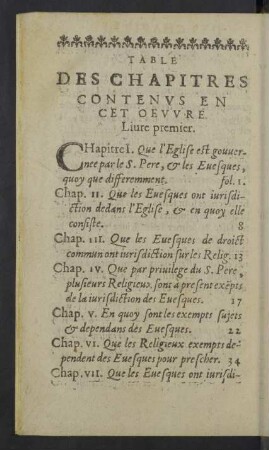 TABLE
DES CHAPITRES
CONTENVS EN
CET OEVVRE.
Liure premier.
CHapitre I. Que l'Egliſe eſt gouuer-
nee par le S. Pere, & les Eueſques,
quoy que differemment. fol. 1.
Chap. II. Que les Eueſques ont iuriſdi-
ction dedans l'Egliſe, & en quoy elle
conſiſte. 8
Chap. III. Que les Eueſques de droict
commun ont iuriſdiction ſur les Relig. 13
Chap. IV. Que par priuilege du S. Pere,
pluſieurs Religieux ſont a preſent exẽpts
de la iuriſdiction des Eueſques. 17
Chap. V. En quoy ſont les exempts ſujets
& dependans des Eueſques. 22
Chap. VI. Que les Religieux exempts de-
pendent des Eueſques pour preſcher. 34
Chap. VII. Que les Eueſques ont iuriſdi-